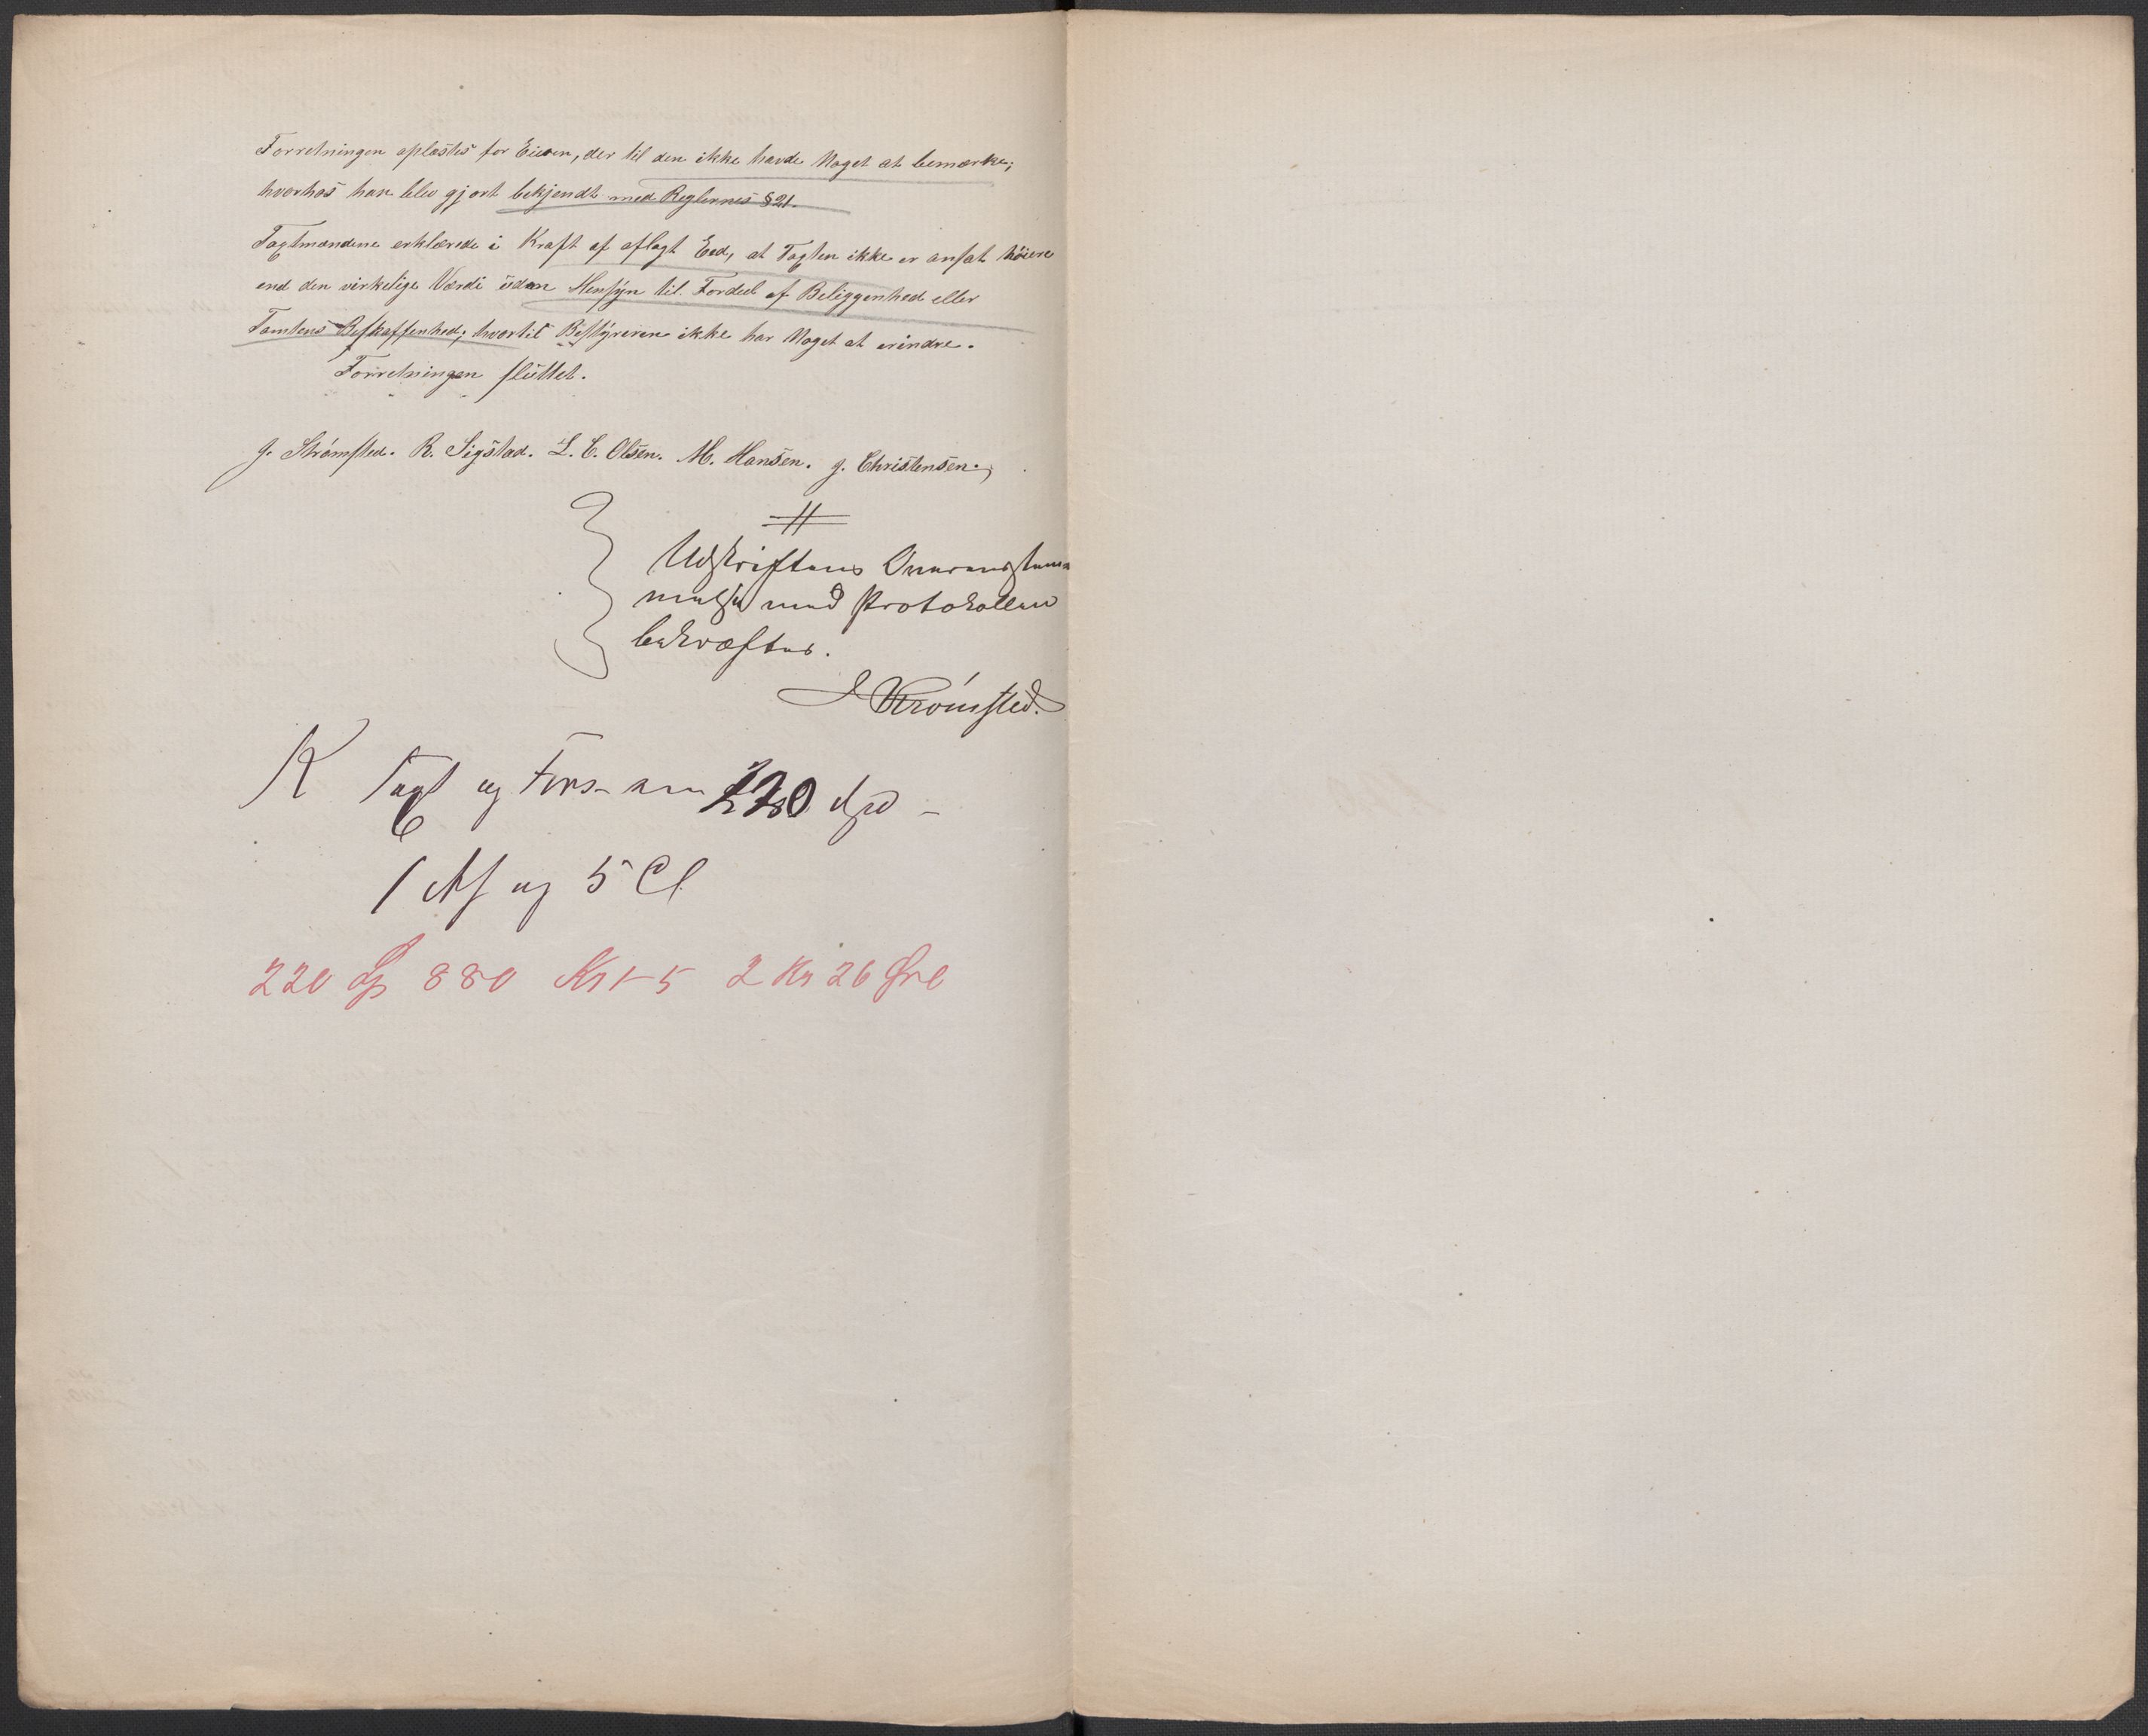 Forretningen oplæstes for Eieren, der til den ikke havde Noget at bemærke;
hvorhos han blev gjort bekjendt med Reglernes § 21.
Taxtmændene erklærede i Kraft af aflagt Eed, at Taxten ikke er ansat høiere
end den virkelige Værdi uden Hensyn til Fordeel af Beliggenhed eller
Tomtens Beskaffenhed; hvortil Bestyreren ikke har Noget at erindre.
Forretningen sluttet.
J. Strømsted. R. Sigstad. L. C. Olsen. M. Hansen. J. Christensen.
Udskriftens Overensstem-
melse med Protokollen
bekræftes.
J Strømsted.
K Taxt og Fors- 220
1 Af og 5 Cl
220 880 Kr 1-5 2 Kr 26 Øre